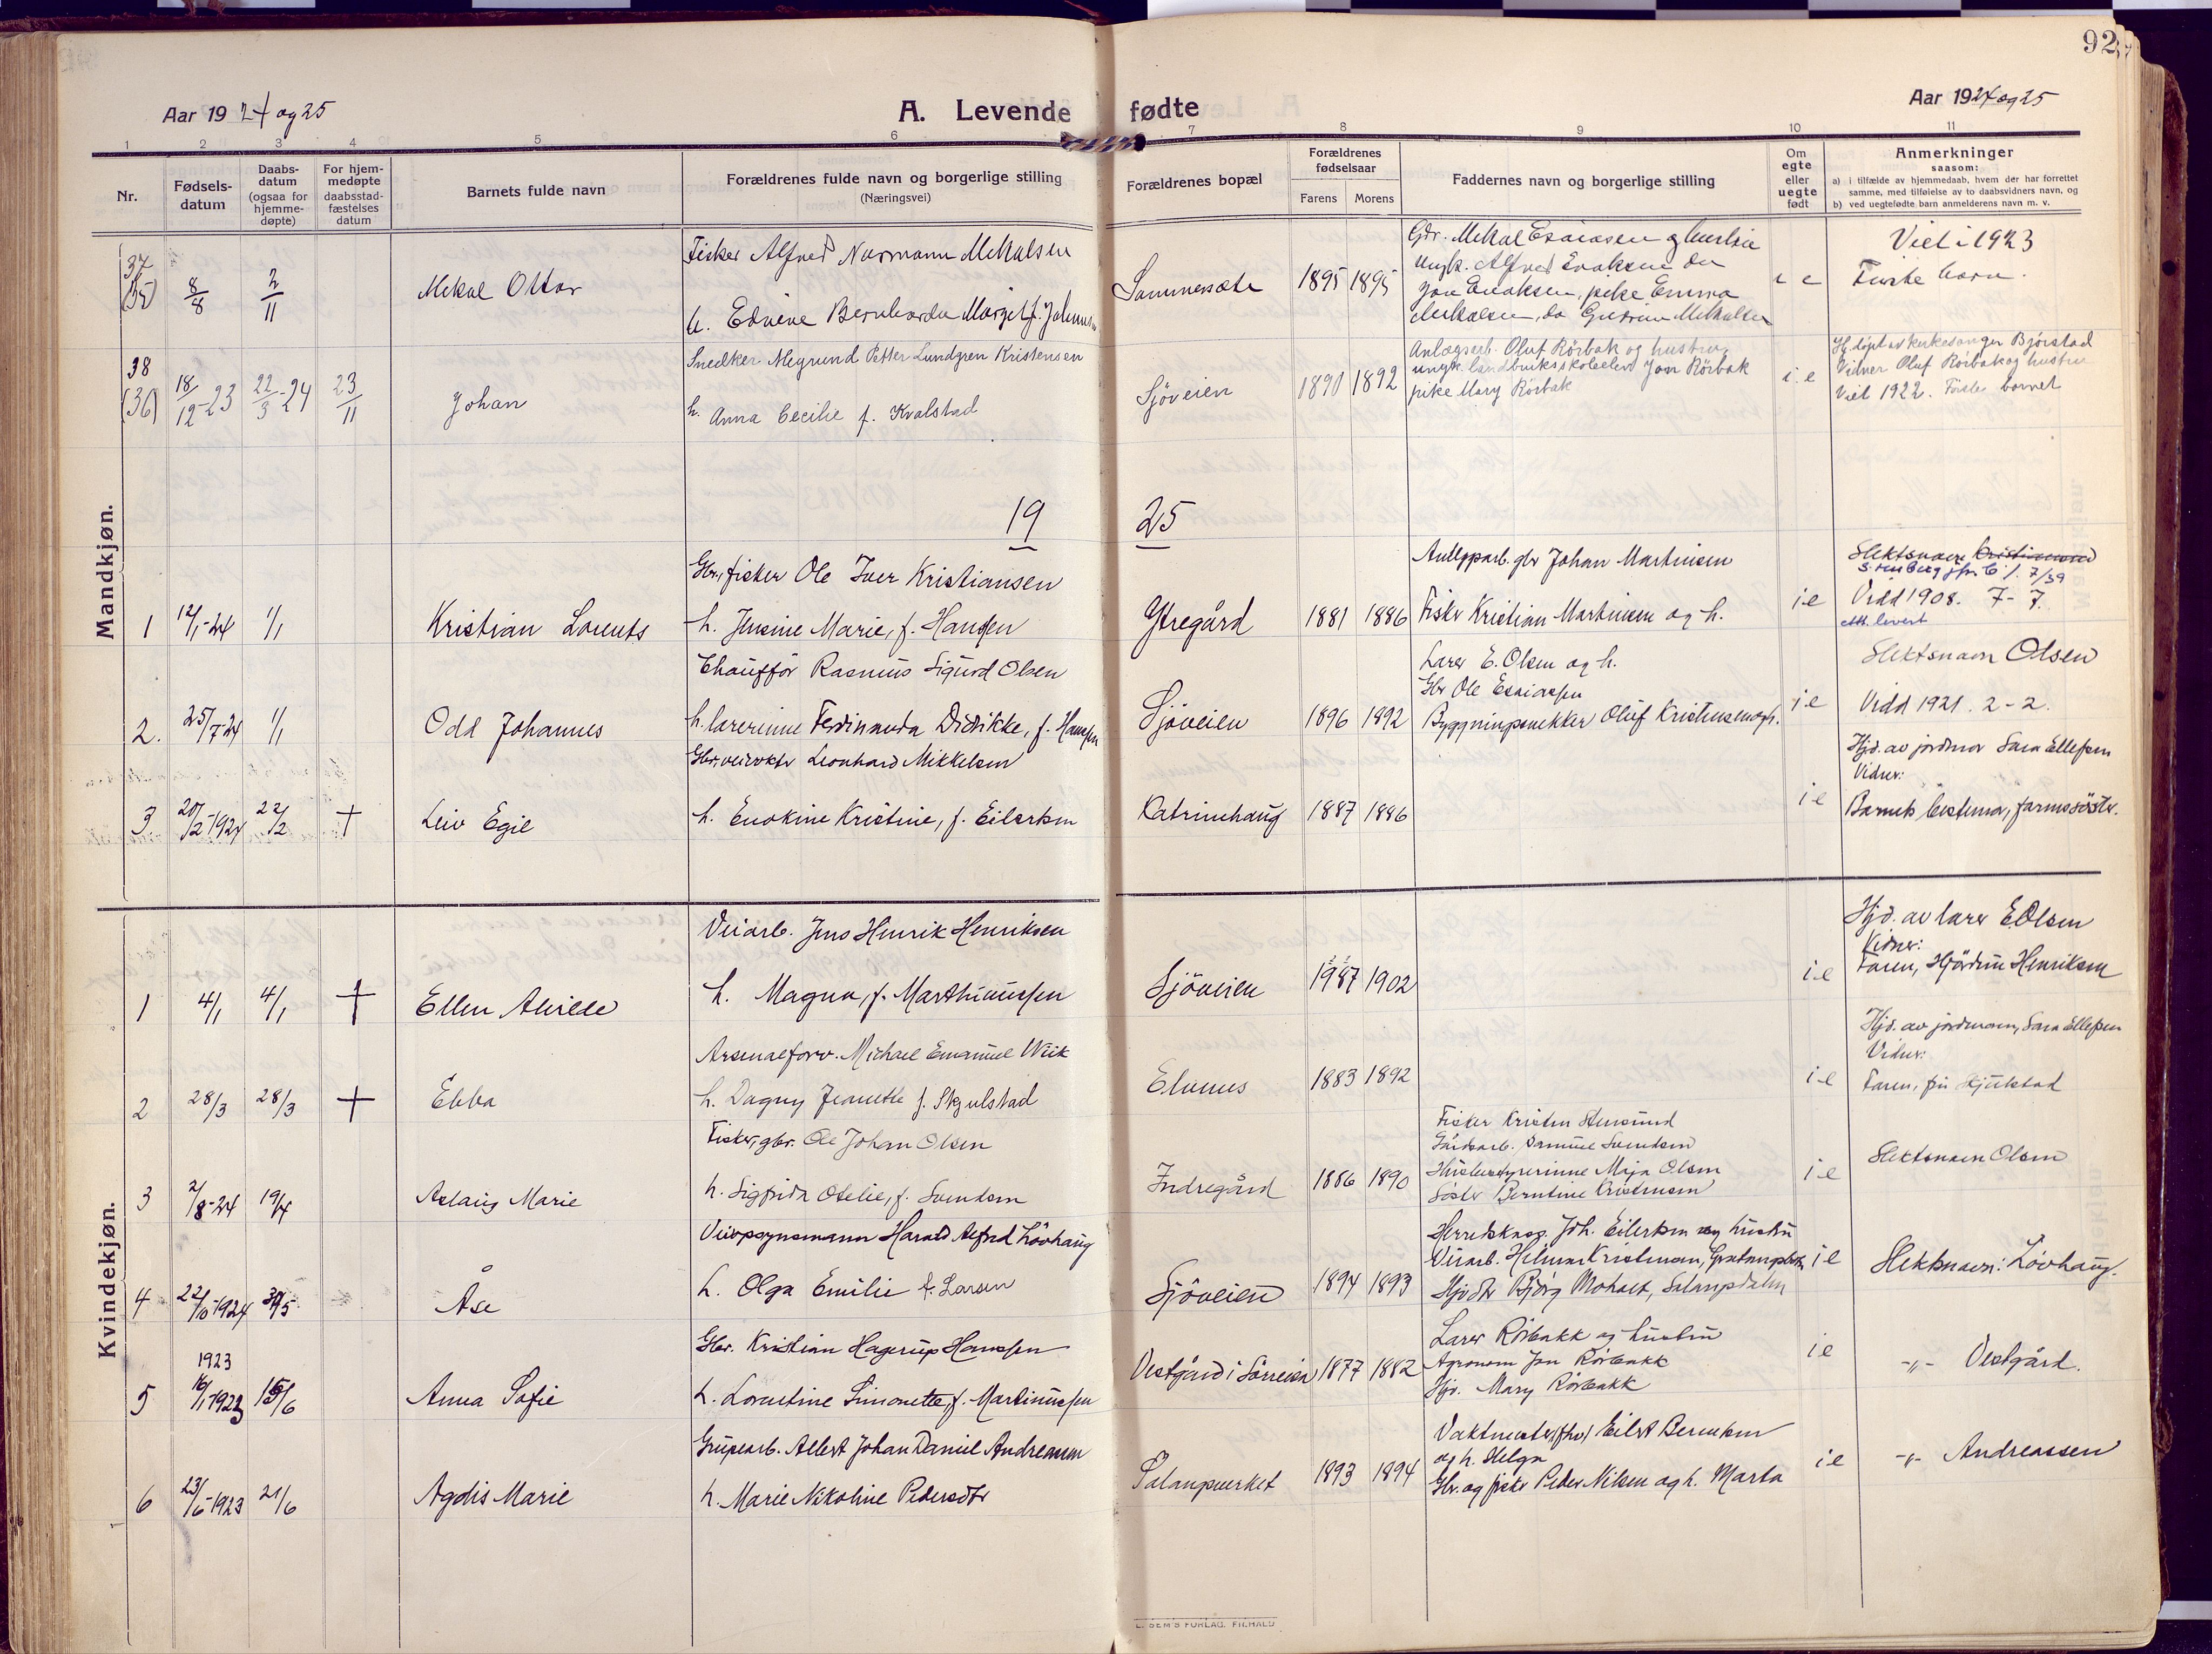 92
Aar 1924 og 25
A. Levende fødte
Aar 1924 og 25
1 2 3 4 5 6 7 8 9 10 11
Nr.
Fødsels-
datum
Daabs-
datum
(ogsaa for
hjemme-
døpte)
For hjem-
medøpte
daabsstad-
fæstelses
datum
Barnets fulde navn
Forældrenes fulde navn og borgerlige stilling
(Næringsvei)
Forældrenes bopæl
Forældrenes
fødselsaar
Farens Morens
Faddernes navn og borgerlige stilling
Om
egte
eller
uegte
født
Anmerkninger
saasom:
a) i tilfælde av hjemmedaab, hvem der har forrettet
samme, med tilføielse av to daabsvidners navn, og
b) ved uegtefødte barn anmelderens navn m. v.
Mandkjøn.
37
(35)
8/8
2/11
Mekal Ottar
Fisker Alfred Normann Mekalsen
h. Edvine Bernharda Margit f.
1895 1895
Gbr. Mekal Esaiassen og hustru
Ungk. Alfred Enoksen
Jon Enoksen, pike Emma
Mekalsen, do Gudrun Mekalsen
Viet i 1923
Første barn.
38
(36)
18/12-23
22/3-24
23/11
Johan
Snedker Megrund Petter Lundgren Kristensen
h. Anna Cecilie f. Kvalstad
Sjøveien
1890 1892
Anlægsarb. Oluf Rörbak og hustru,
ungk. landbruksskoleelev Jon Rörbak
pike Mary Rörbak
i.e
Hj.døpt av kirkesanger Bjørstad
Vidner Oluf Rörbak og hustru
Viet 1922. Første barnet
19 25
1
12/1-24
1/1
Kristian Lorents
Gbr., fisker Ole Iver Kristiansen
h. Jensine Marie, f. Hansen
Ytregård
1881 1886
Anleggsarb. gbr Johan Martinsen
Fisker Kristian Martinsen og h.
i.e
Slektsnavn Kristiansen
7/39
Vidd 1908. 7-7.
Att. levert
2.
25/7-24
1/1
Odd Johannes
Chauffør Rasmus Sigurd Olsen
h. lærerinne Ferdinanda Didrikke, f. Hansen
Sjöveien
1896 1892
Lærer E. Olsen og h.
Gbr Ole Esaiassen
Byggningssnekker Oluf Kristensen og h.
i.e
Slektsnavn Olsen
Vidd 1921. 2-2.
3.
20/2-1924
22/2
+
Leiv Egil
Gbr., veivokter Leonhard Mikkelsen
h. Enokine Kristine, f. Eilertsen
Katrinehaug
1887 1886
i e
Hjd. av jordmor Sara Ellefsen
Vidner:
Barnets bestemor, farmssöster.
Kvindekjøn.
1
4/1
4/1
+
Ellen Alvilde
Veiarb. Jens Henrik Henriksen
h. Magna, f. Marthinussen
Sjöveien
1987 1902
i e
Hjd. av lærer E. Olsen
Vidner:
Faren, Hjördine Henriksen
2
28/3
28/3
+
Ebba
Arsenalforv. Michael Emanuel Wiik
h. Dagny Jeanette f. Skjulstad
Elvenes
1883 1892
i-e
Hjd. av jordmoren, Sara Ellefsen
Vidner:
Faren, fru Skjulstad
3
2/8-24
19/4
Aslaug Marie
Fisker, gbr. Ole Johan Olsen
h. Sigfrida Otelie, f. Svendsen
Indregård
1886 1890
Fisker Kristen Stensund
Gårdsarb. Samuel Svendsen
Husbestyrerinne Maja Olsen
Söster Berntine Kristensen
i e
Slektsnavn Olsen
4
22/10-1924
30/5
Åse
Veiopsynsmann Harald Alfred Lövhaug
h. Olga Emilie f. Larsen
Sjöveien
1894 1893
Herredskass. Joh. Eilertsen og hustru
Veiarb. Helmer Kristensen, Gratangsbotn
Hjvdtr Björg Moholt, Salangsdalen
i e
Slektsnavn: Lövhaug.
5
1923
16/1-1923
15/6
Anna Sofie
Gbr. Kristian Hagerup Hanssen
h. Lorentine Simonette, f. Martinussen
Vestgård i Sörreisa
1877 1882
Lærer Rörbakk og hustru
Agronom Jon Rörbakk
Hjv. Mary Rörbakk
i e
-"- Vestgård.
6
23/6-1923
21/6
Agdis Marie
Grupearb. Albert Johan Daniel Andreassen
h. Marie Nikoline Pedersdtr
Salangsverket
1893 1894
Vaktmester (fhv) Eilert Berntsen
og h. Helga
Gbr. og fisker Peder Nilsen og h. Marta
i e
-"- Andreassen